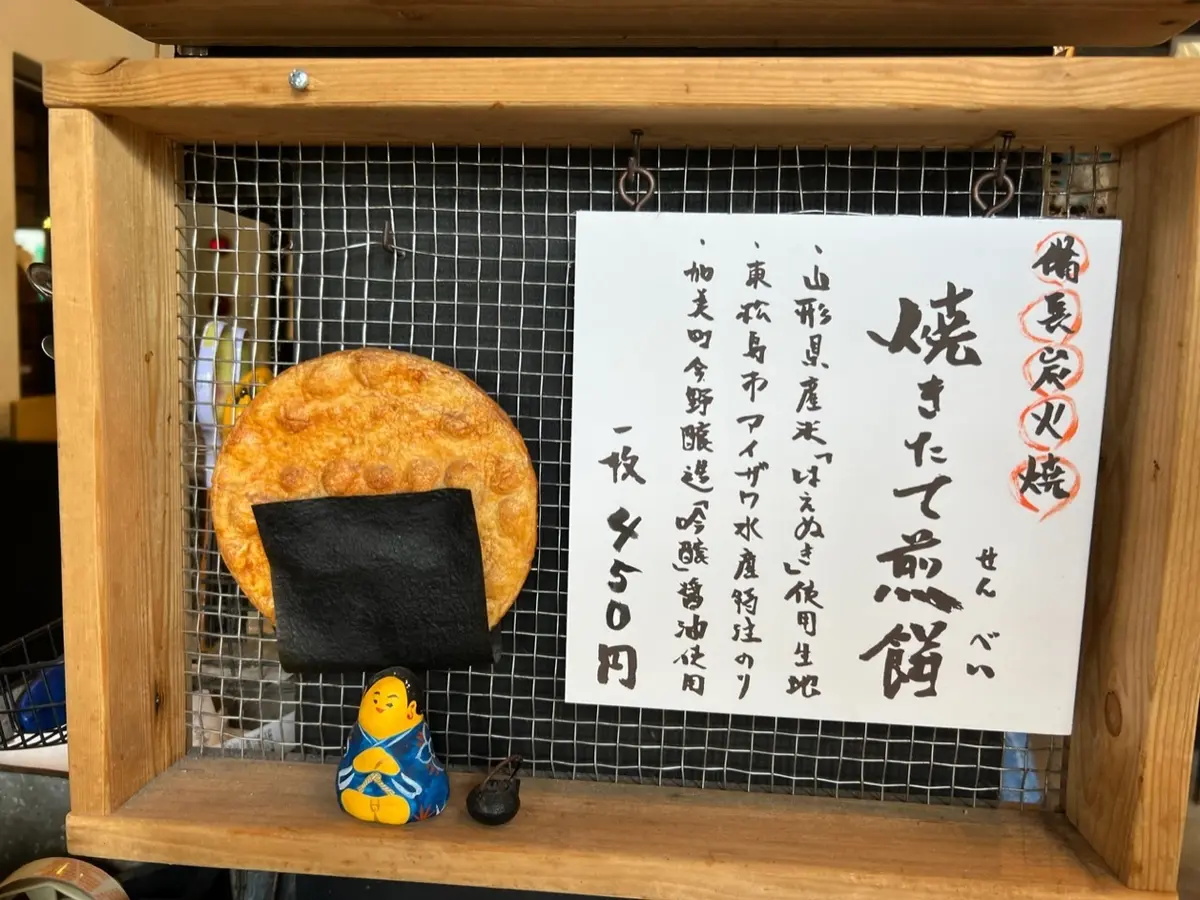 備長炭火焼
焼きたて煎餅
せんべい
・山形県産米「はえぬき」使用生地
・東松島市アイザワ水産特注のり
・加美町今野醸造「吟醸」醤油使用
一枚 450円